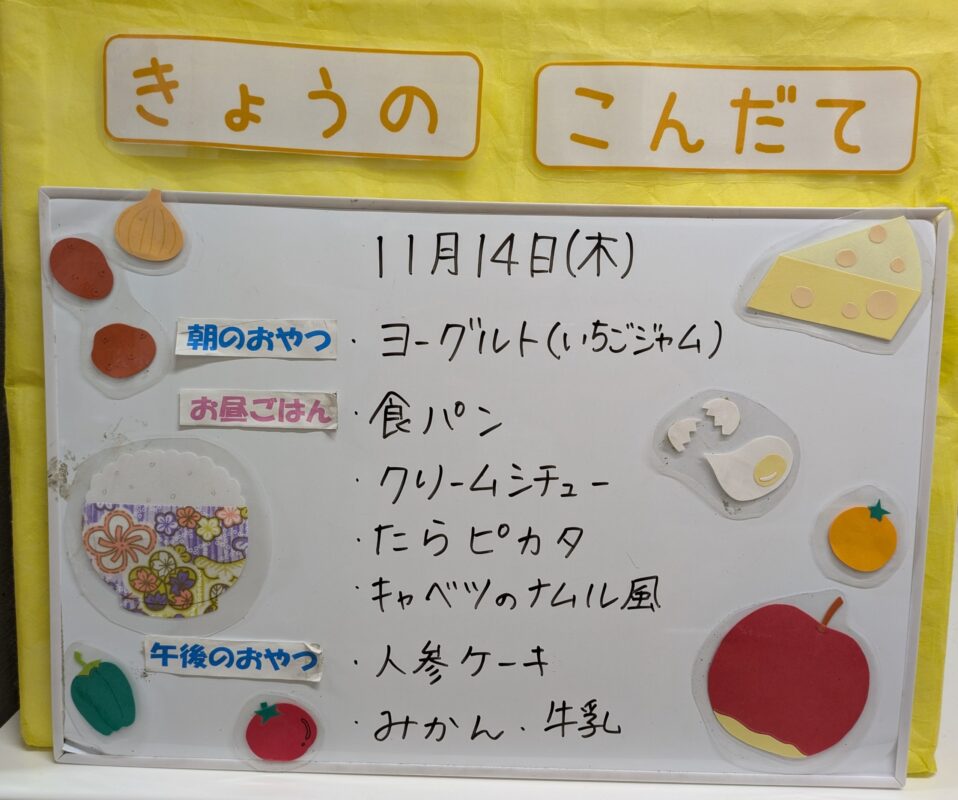 きょうの こんだて
11月14日(木)
朝のおやつ ・ヨーグルト(いちごジャム)
お昼ごはん ・食パン
・クリームシチュー
・たらピカタ
・キャベツのナムル風
午後のおやつ ・人参ケーキ
・みかん・牛乳